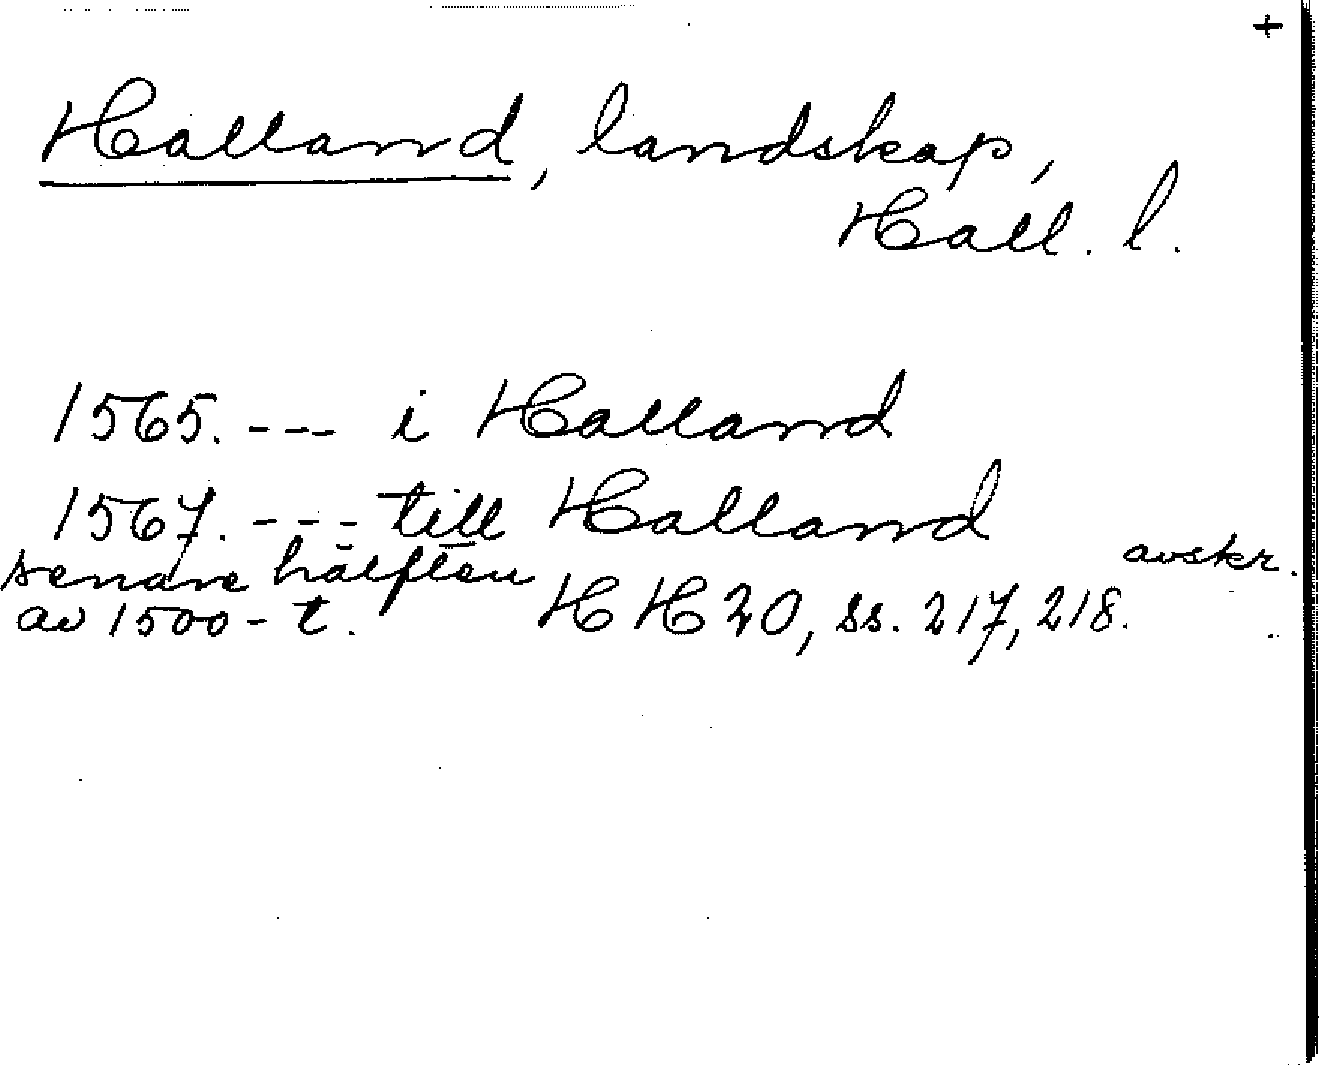 +
Halland, landskap,
Hall. l.
1565. --- i Halland
1567. --- till Halland
senare hälften avskr.
av 1500-t. HH 20, ss. 217, 218.